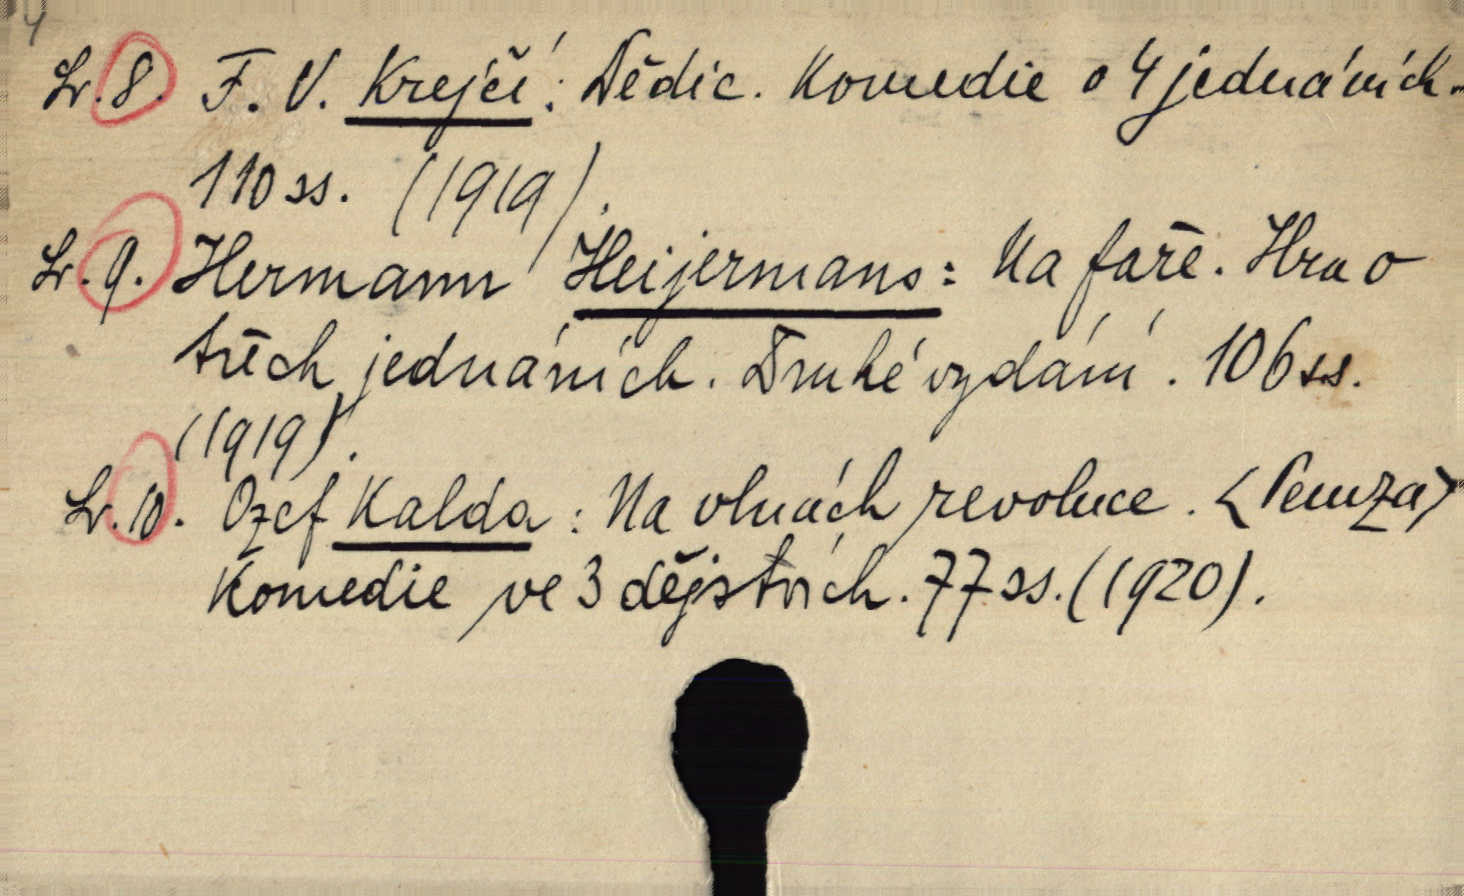 4
Sv. 8. F. V. Krejčí: Dědic. Komedie o 4 jednáních.
110 ss. (1919).
Sv. 9. Hermann Heijermans: Na faře. Hra o
třech jednáních. Druhé vydání. 106 ss.
(1919).
Sv. 10. Ozef Kalda: Na vlnách revoluce. <Pemza>
Komedie ve 3 dějstvích. 77 ss. (1920).